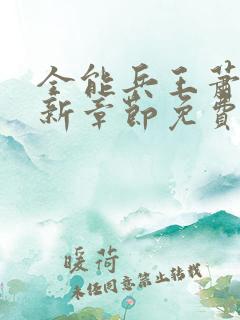 全能兵王萧
新章节免费
暖荷
未经同意禁止转载